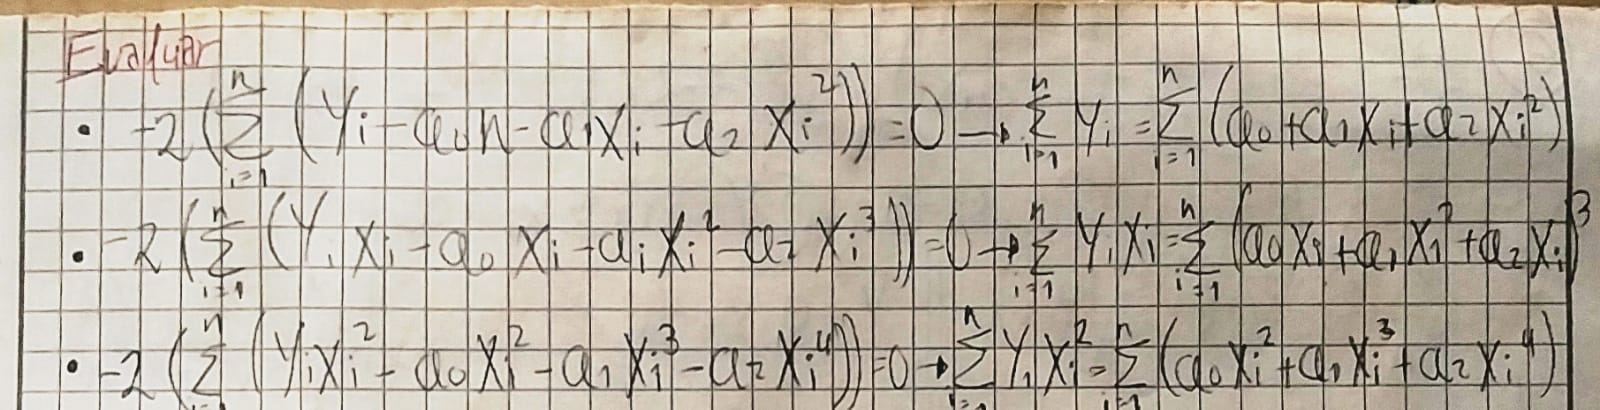 Evaluar
• -2(∑_{i=1}^{n} (Yi - a₀n - a₁Xi + a₂ Xi²)) = 0 → ∑_{i=1}^{n} Yi = ∑_{i=1}^{n} (a₀ + a₁Xi + a₂Xi²)
• -2(∑_{i=1}^{n} (Yi Xi - a₀ Xi - aiXi² - a₂ Xi³)) = 0 → ∑_{i=1}^{n} YiXi = ∑_{i=1}^{n} (a₀Xi + a₁X1² + a₂Xi)³
• -2(∑_{i=1}^{n} (YiXi² - a₀Xi² - a₁Xi³ - a₂Xi⁴)) = 0 → ∑_{i=1}^{n} YiXi² = ∑_{i=1}^{n} (a₀Xi² + a₁Xi³ + a₂Xi⁴)